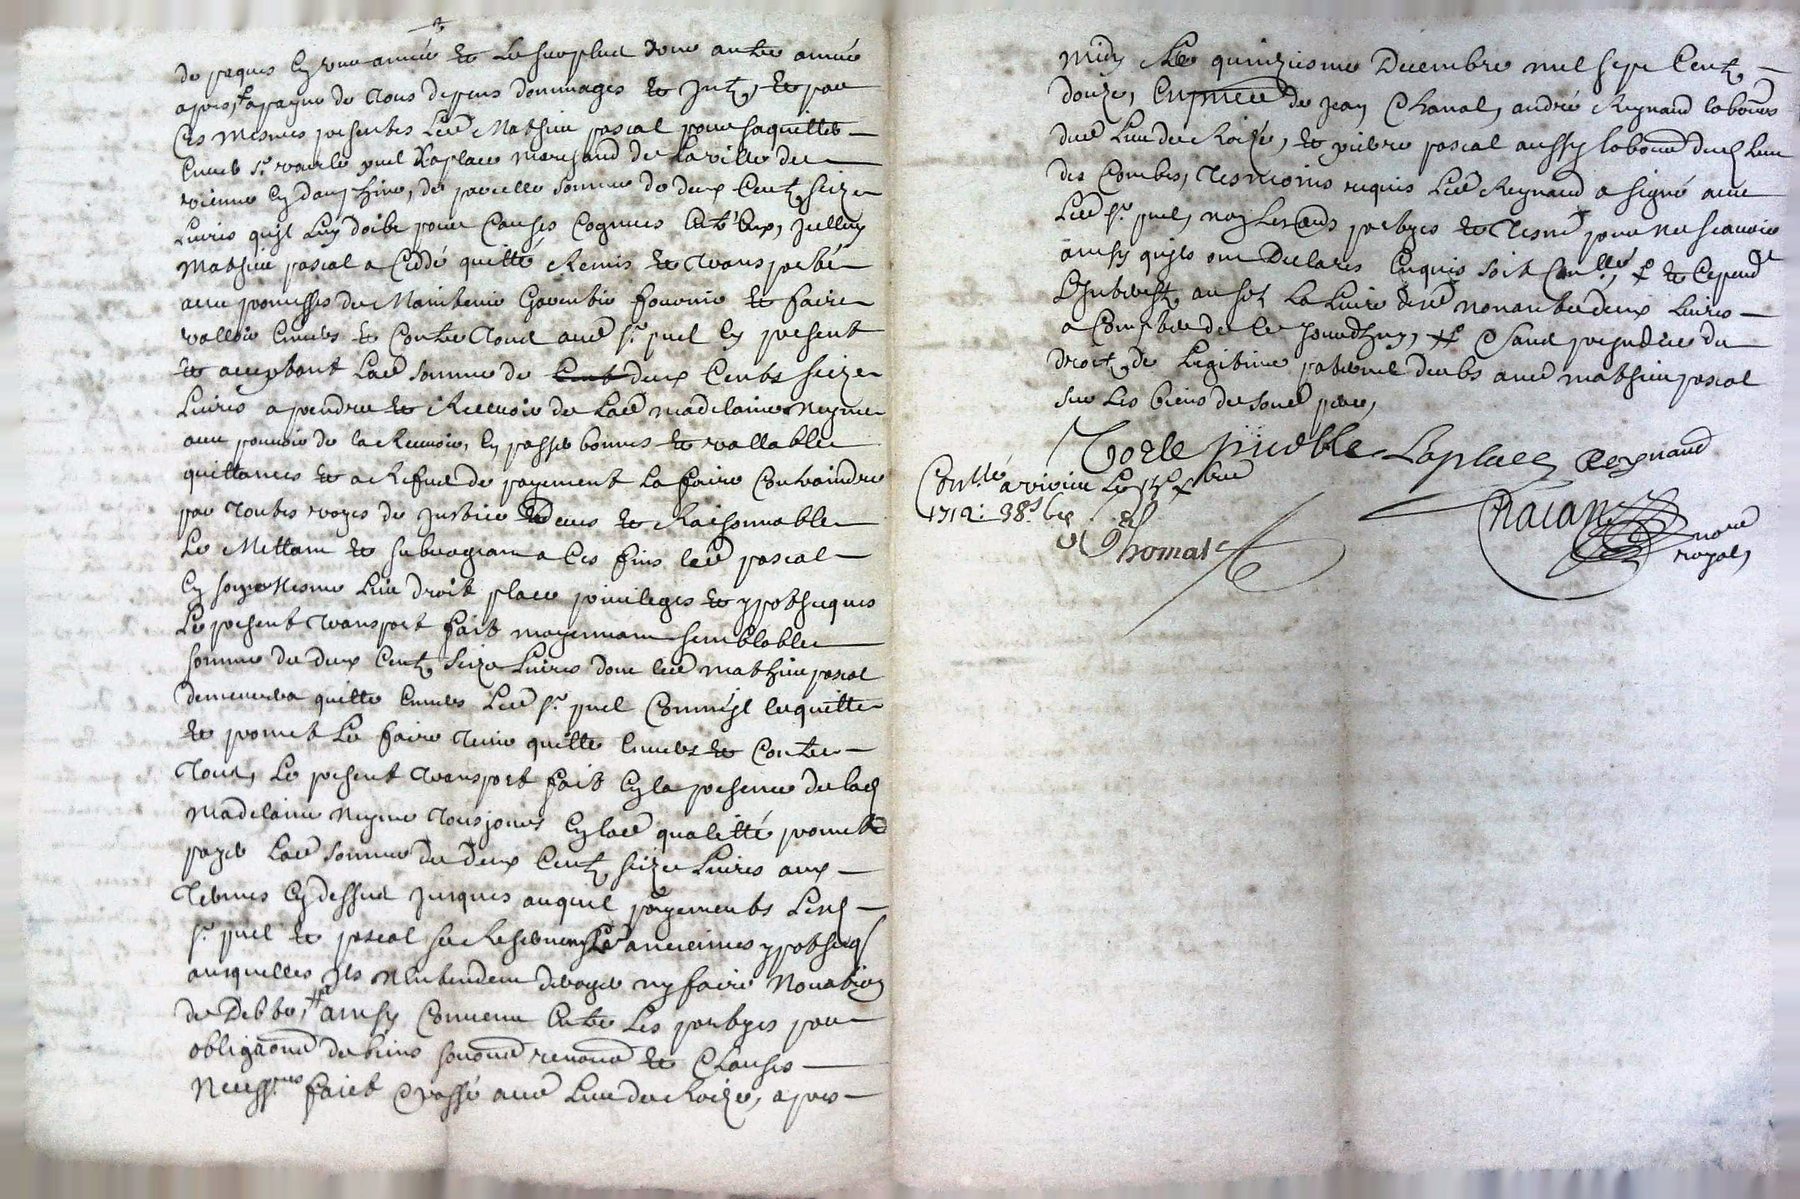 de paques en une année et le surplus d'une autre année
apres, a payne de tous despens dommages et intz, et par
ces mesmes presentes led Mathieu pascal pour sacquitter
envers sr paul laplace marchand de la ville de
vienne en dauphine, de pareille somme de deux centz seize
livres quil luy doibt pour causes cognues entre eux, icelluy
Mathieu pascal a ceddé quitté Remis et transporté
avec promesses de Maintenir garentir fournir et faire
valloir envers et contre tous aud sr puel en present
et acceptant lad somme de deux Cents seize
livres a prendre et Recevoir de lad madelaine neyme
avec pouvoir de la Recevoir, en passer bonnes et vallables
quittances et a Refus de payement la faire Contraindre
par toutes voyes de justice deues et Raisonnables
Le Mettant et subrogeant a ces fins led pascal
en son mesme lieu droit place privileges et ypotheques
Le present transport fait moyennant semblable
somme de deux Centz seize livres dont led mathieu pascal
demeurera quitte envers led sr puel comm'jl le quitte
et promet le faire tenir quitte envers et contre
tous, Le present transport fait en la presence de lad
Madelaine neyme tousjours en lad qualitté promet
payer lad somme de deux Centz seize livres aux
termes cy dessus jusques auquel payements lesd
sr puel et pascal se Reservent les anciennes ypothecq
ausquelles jls n'entendent deroger ny faire Novation
de Debte, ainsy Convenu entre les partyes par
obligaoné de biens renond et Clauses
Necessres faict et passé aud lieu de Roize, apres
midy Le quinziesme Decembre mil sept Centz
douze, En prece de jean Chanal, andré Reynaud laboures
dud lieu de Roize, et pierre pascal aussy labour dud lieu
des Combes, tesmoins requis led Reynaud a signé avec
led sr puel, non les auds partyes et tesmt pour ne scavoir
ainsy quils ont Declarés Enquis soit Conllé, et cepend
L'intherest au sol la livre dud nonante deux livres
a Compter de ce jourdhuy, sans prejudice du
droit de Legitime paternel deubs aud mathieu pascal
sur les biens de soned pere,
Laplace Reynaud
Conllé a vienne le xbre
1712
Thomas
Chacan nore
royal,